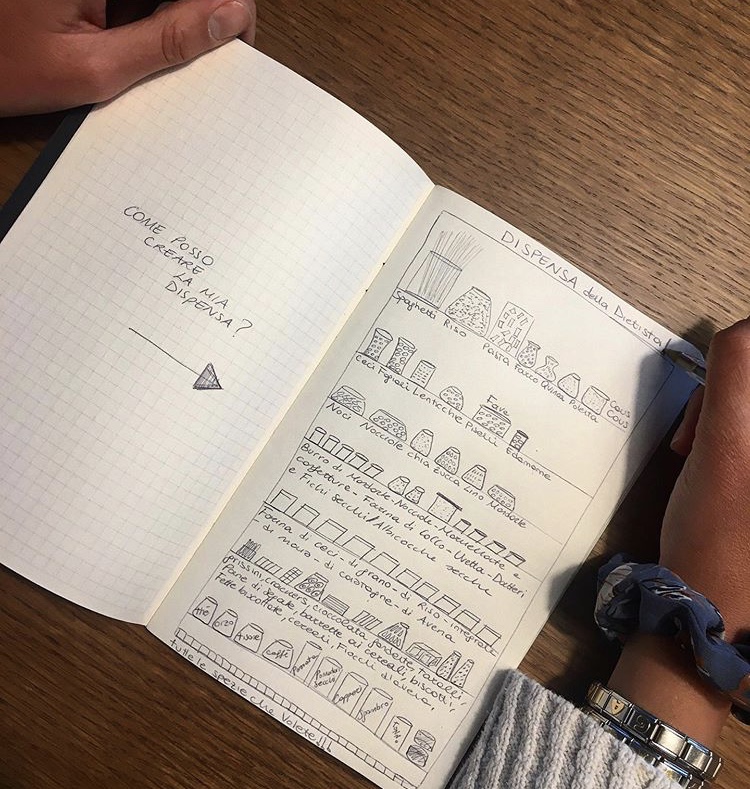 COME POSSO
CREARE
LA MIA
DISPENSA?
DISPENSA della Dietista
Spaghetti Riso Pasta Farro Quinoa Polenta Cous Cous
Ceci Fagioli Lenticche Piselli Fave Edamame
Noci Nocciole chia Zucca Lino Mandorle
Burro di Mandorle - Nocciole - Marmellate e
confetture - Farina di Cocco - Uvetta - Datteri
e Fichi secchi / Albicocche secche
Farina di ceci - di grano - di Riso - integrale
- di mais - di castagne - di Avena
Grissini, crackers, cioccolata fondente, taralli,
Pane di segale, barrette ai cereali, biscotti,
Fette biscottate, cereali, Fiocchi d'avena,
thè orzo caffè Pomodoro secco Capperi
tutte le spezie che Volete!!